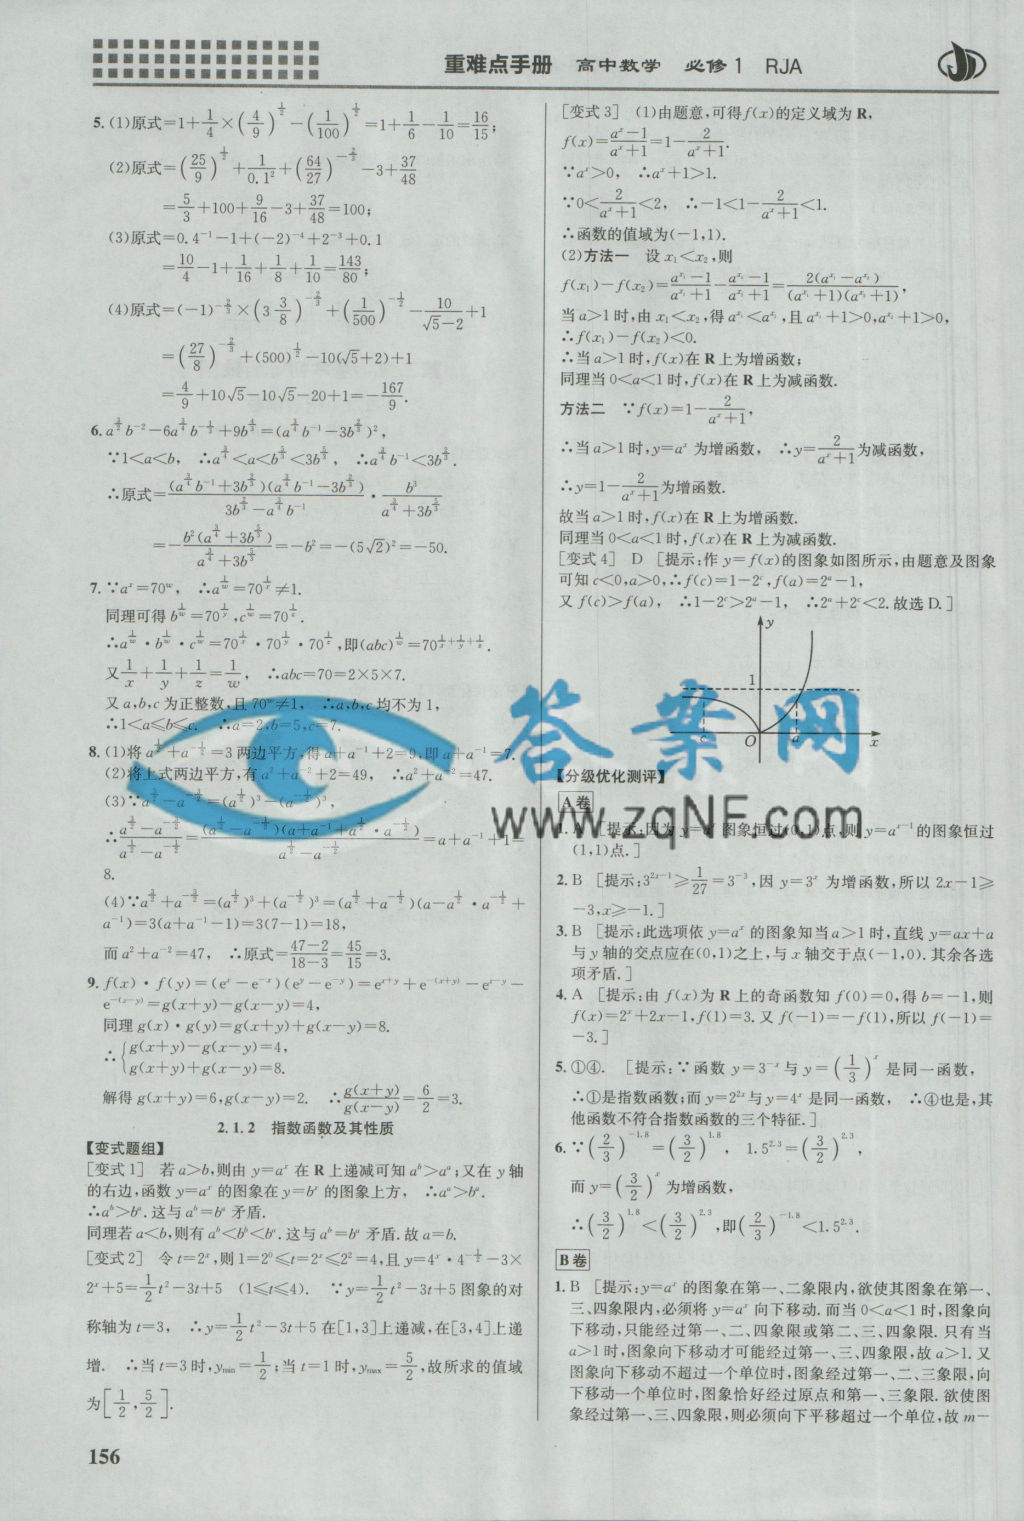 重难点手册 高中数学 必修1 RJA
5.(1)原式=1+1/4×(4/9)^{1/2}-(1/100)^{1/2}=1+1/6-1/10=16/15;
(2)原式=(25/9)^{1/2}+1/0.1²+(64/27)^{-2/3}-3+37/48
=5/3+100+9/16-3+37/48=100;
(3)原式=0.4^{-1}-1+(-2)^{-4}+2^{-3}+0.1
=10/4-1+1/16+1/8+1/10=143/80;
(4)原式=(-1)^{-2/3}×(3 3/8)^{-2/3}+(1/500)^{-1/2}-10/(√5-2)+1
=(27/8)^{-2/3}+(500)^{1/2}-10(√5+2)+1
=4/9+10√5-10√5-20+1=-167/9.
∵1<a<b,
=-b²=-(5√2)²=-50.
7.∵a^x=70^w, ∴a^{1/w}=70^{1/x}≠1.
同理可得b^{1/w}=70^{1/y},c^{1/w}=70^{1/z}.
∴a^{1/w}·b^{1/w}·c^{1/w}=70^{1/x}·70^{1/y}·70^{1/z},即(abc)^{1/w}=70^{1/x+1/y+1/z}.
又1/x+1/y+1/z=1/w, ∴abc=70=2×5×7.
又a,b,c为正整数,且70^w≠1, ∴a,b,c均不为1,
∴1<a≤b≤c. ∴a=2,b=5,c=7.
8.(1)将a^{1/2}+a^{-1/2}=3两边平方,得a+a^{-1}+2=9,即a+a^{-1}=7.
(2)将上式两边平方,有a²+a^{-2}+2=49, ∴a²+a^{-2}=47.
(3)∵a^{3/2}-a^{-3/2}=(a^{1/2})³-(a^{-1/2})³,
∴(a^{3/2}-a^{-3/2})/(a^{1/2}-a^{-1/2})=(a^{1/2}-a^{-1/2})(a+a^{-1}+a^{1/2}·a^{-1/2})/(a^{1/2}-a^{-1/2})=a+a^{-1}+1=
8.
(4)∵a^{3/2}+a^{-3/2}=(a^{1/2})³+(a^{-1/2})³=(a^{1/2}+a^{-1/2})(a-a^{1/2}·a^{-1/2}+
a^{-1})=3(a+a^{-1}-1)=3(7-1)=18,
而a²+a^{-2}=47, ∴原式=(47-2)/(18-3)=45/15=3.
9.f(x)·f(y)=(e^x-e^{-x})(e^y-e^{-y})=e^{x+y}+e^{-(x+y)}-e^{x-y}-
e^{-(x-y)}=g(x+y)-g(x-y)=4,
同理g(x)·g(y)=g(x+y)+g(x-y)=8.
∴{g(x+y)-g(x-y)=4,
g(x+y)+g(x-y)=8.
解得g(x+y)=6,g(x-y)=2. ∴g(x+y)/g(x-y)=6/2=3.
2.1.2 指数函数及其性质
【变式题组】
[变式1] 若a>b,则由y=a^x在R上递减可知a^b>a^a;又在y轴
的右边,函数y=a^x的图象在y=b^x的图象上方, ∴a^a>b^a.
∴a^b>b^a.这与a^b=b^a矛盾.
同理若a<b,则有a^b<b^b<b^a.这与a^b=b^a矛盾.故a=b.
[变式2] 令t=2^x,则1=2⁰≤t=2^x≤2²=4,且y=4^x·4^{-1/2}-3×
2^x+5=1/2t²-3t+5 (1≤t≤4). ∵y=1/2t²-3t+5图象的对
称轴为t=3, ∴y=1/2t²-3t+5在[1,3]上递减,在[3,4]上递
增. ∴当t=3时,y_min=1/2;当t=1时,y_max=5/2,故所求的值域
为[1/2,5/2].
156
[变式3] (1)由题意,可得f(x)的定义域为R,
f(x)=(a^x-1)/(a^x+1)=1-2/(a^x+1).
∵a^x>0, ∴a^x+1>1.
∵0<2/(a^x+1)<2, ∴-1<1-2/(a^x+1)<1.
∴函数的值域为(-1,1).
(2)方法一 设x₁<x₂,则
f(x₁)-f(x₂)=(a^{x₁}-1)/(a^{x₁}+1)-(a^{x₂}-1)/(a^{x₂}+1)=2(a^{x₁}-a^{x₂})/((a^{x₁}+1)(a^{x₂}+1)),
当a>1时,由x₁<x₂,得a^{x₁}<a^{x₂},且a^{x₁}+1>0,a^{x₂}+1>0,
∴f(x₁)-f(x₂)<0.
∴当a>1时,f(x)在R上为增函数;
同理当0<a<1时,f(x)在R上为减函数.
方法二 ∵f(x)=1-2/(a^x+1),
∴当a>1时,y=a^x为增函数, ∴y=2/(a^x+1)为减函数.
∴y=1-2/(a^x+1)为增函数.
故当a>1时,f(x)在R上为增函数.
同理当0<a<1时,f(x)在R上为减函数.
[变式4] D [提示:作y=f(x)的图象如图所示,由题意及图象
可知c<0,a>0,∴f(c)=1-2^c,f(a)=2^a-1,
又f(c)>f(a), ∴1-2^c>2^a-1, ∴2^a+2^c<2.故选D.]
y
1
c O a x
答案网
www.zqNF.com
【分级优化测评】
A卷
1.A [提示:因为y=a^x图象恒过(0,1)点,则y=a^{x-1}的图象恒过
(1,1)点.]
2.B [提示:3^{2x-1}≥1/27=3^{-3},因y=3^x为增函数,所以2x-1≥
-3,x≥-1.]
3.B [提示:此选项依y=a^x的图象知当a>1时,直线y=ax+a
与y轴的交点应在(0,1)之上,与x轴交于点(-1,0).其余各选
项矛盾.]
4.A [提示:由f(x)为R上的奇函数知f(0)=0,得b=-1,则
f(x)=2^x+2x-1,f(1)=3.又f(-1)=-f(1),所以f(-1)=
-3.]
5.①④. [提示:∵函数y=3^{-x}与y=(1/3)^x是同一函数,
∴①是指数函数;而y=2^{2x}与y=4^x是同一函数, ∴④也是,其
他函数不符合指数函数的三个特征.]
6.∵(2/3)^{-1.8}=(3/2)^{1.8}, 1.5^{2.3}=(3/2)^{2.3},
而y=(3/2)^x为增函数,
∴(3/2)^{1.8}<(3/2)^{2.3},即(2/3)^{-1.8}<1.5^{2.3}.
B卷
1.B [提示:y=a^x的图象在第一、二象限内,欲使其图象在第一、
三、四象限内,必须将y=a^x向下移动.而当0<a<1时,图象向
下移动,只能经过第一、二、四象限或第二、三、四象限.只有当
a>1时,图象向下移动才可能经过第一、三、四象限,故a>1.又
图象向下移动不超过一个单位时,图象经过第一、二、三象限,向
下移动一个单位时,图象恰好经过原点和第一、三象限.欲使图
象经过第一、三、四象限,则必须向下平移超过一个单位,故m-